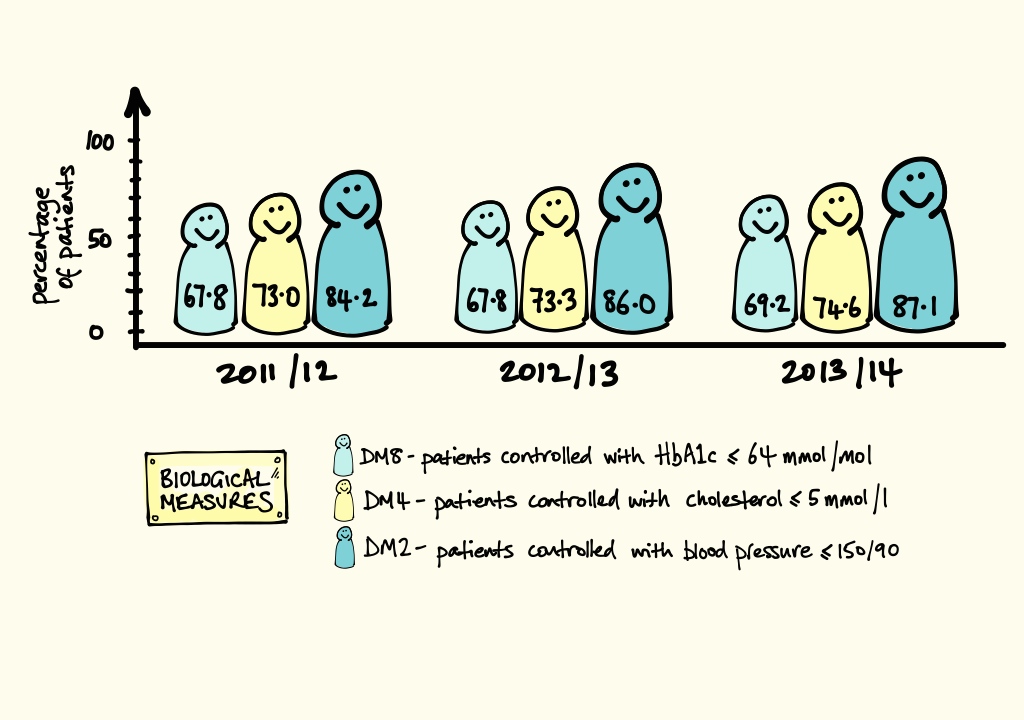 100
percentage
of patients
50
0
67.8 73.0 84.2 67.8 73.3 86.0 69.2 74.6 87.1
2011/12 2012/13 2013/14
BIOLOGICAL
MEASURES
DM8 - patients controlled with HbA1c ≤ 64 mmol/mol
DM4 - patients controlled with cholesterol ≤ 5 mmol/l
DM2 - patients controlled with blood pressure ≤ 150/90